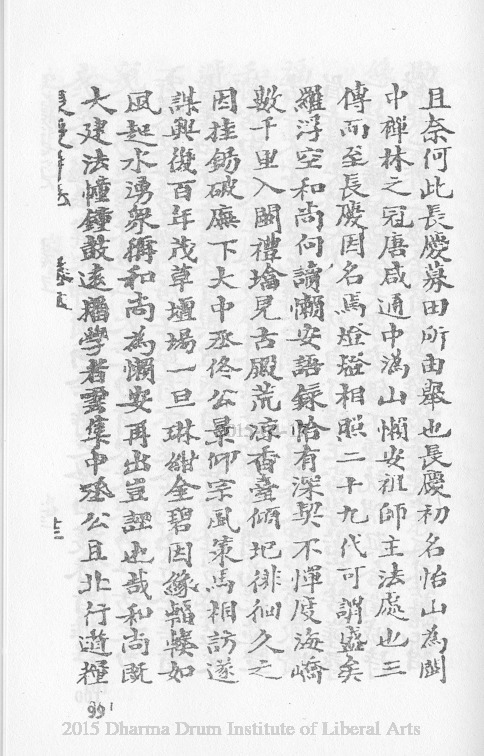 且奈何此長慶募田所由舉也長慶初名怡山為閩
中禪林之冠唐咸通中溈山懶安祖師主法處也三
傳而至長慶因名焉燈燈相照二十九代可謂盛矣
羅浮空和尚向讀懶安語錄恰有深契不憚度海嶠
數千里入閩禮塔見古殿荒凉香臺傾圮徘徊久之
因挂錫破廡下大中丞佟公景仰宗風策馬相訪遂
謀興復百年茂草壇場一旦琳紺金碧因緣輻輳如
風起水湧衆稱和尚為懶安再出豈誣也哉和尚既
大建法幢鐘鼓遠播學者雲集中丞公且北行遊糧
99
2015 Dharma Drum Institute of Liberal Arts